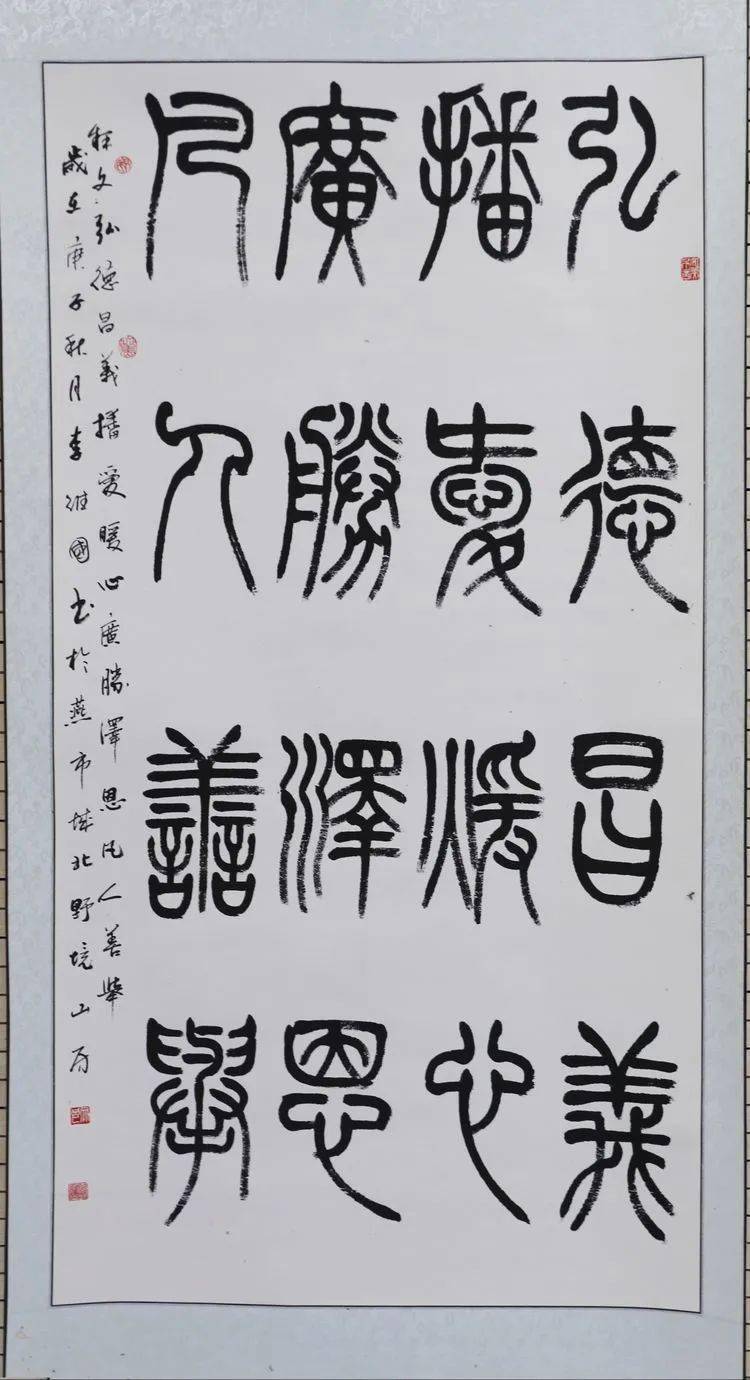 弘德昌義
播愛暖心
廣勝澤恩
凡人善舉
釋文弘德昌義播愛暖心廣勝澤恩凡人善舉
歲在庚子秋月李維國書於燕市城北野境山房